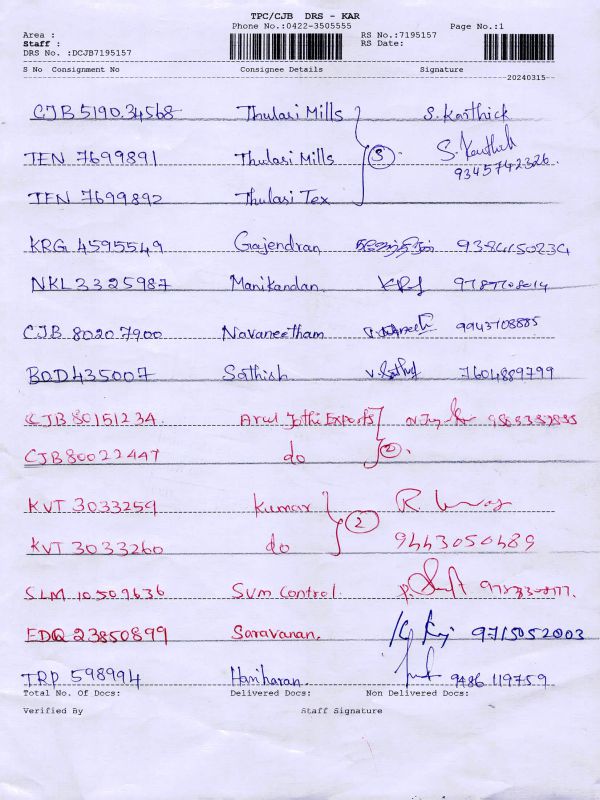 TPC/CJB DRS - KAR
Phone No.:0422-3505555 Page No.:1
Area : RS No.:7195157
Staff : RS Date:
DRS No. :DCJB7195157
S No Consignment No Consignee Details Signature
20240315
CJB 519034568 Thulasi Mills S. Karthick
TEN 7699891 Thulasi Mills (3) S. Karthick
9345742326.
TEN 7699892 Thulasi Tex
KRG 4595549 Gajendran 9384150234
NKL 3325987 Manikandan.
CJB 80207900 Navaneetham 9943708885
BOD 435007 Sathish 7604889799
CJB 80151234. Arul Jothi Exports
CJB 80022447 do (2).
KVT 3033259 Kumar (2)
KVT 3033260 do 9443050489
SLM 10509636 Svm Control.
EDQ 23850899 Saravanan. 9715052003
TRP 598994 Hariharan. 9486 119759
Total No. Of Docs: Delivered Docs: Non Delivered Docs:
Verified By Staff Signature